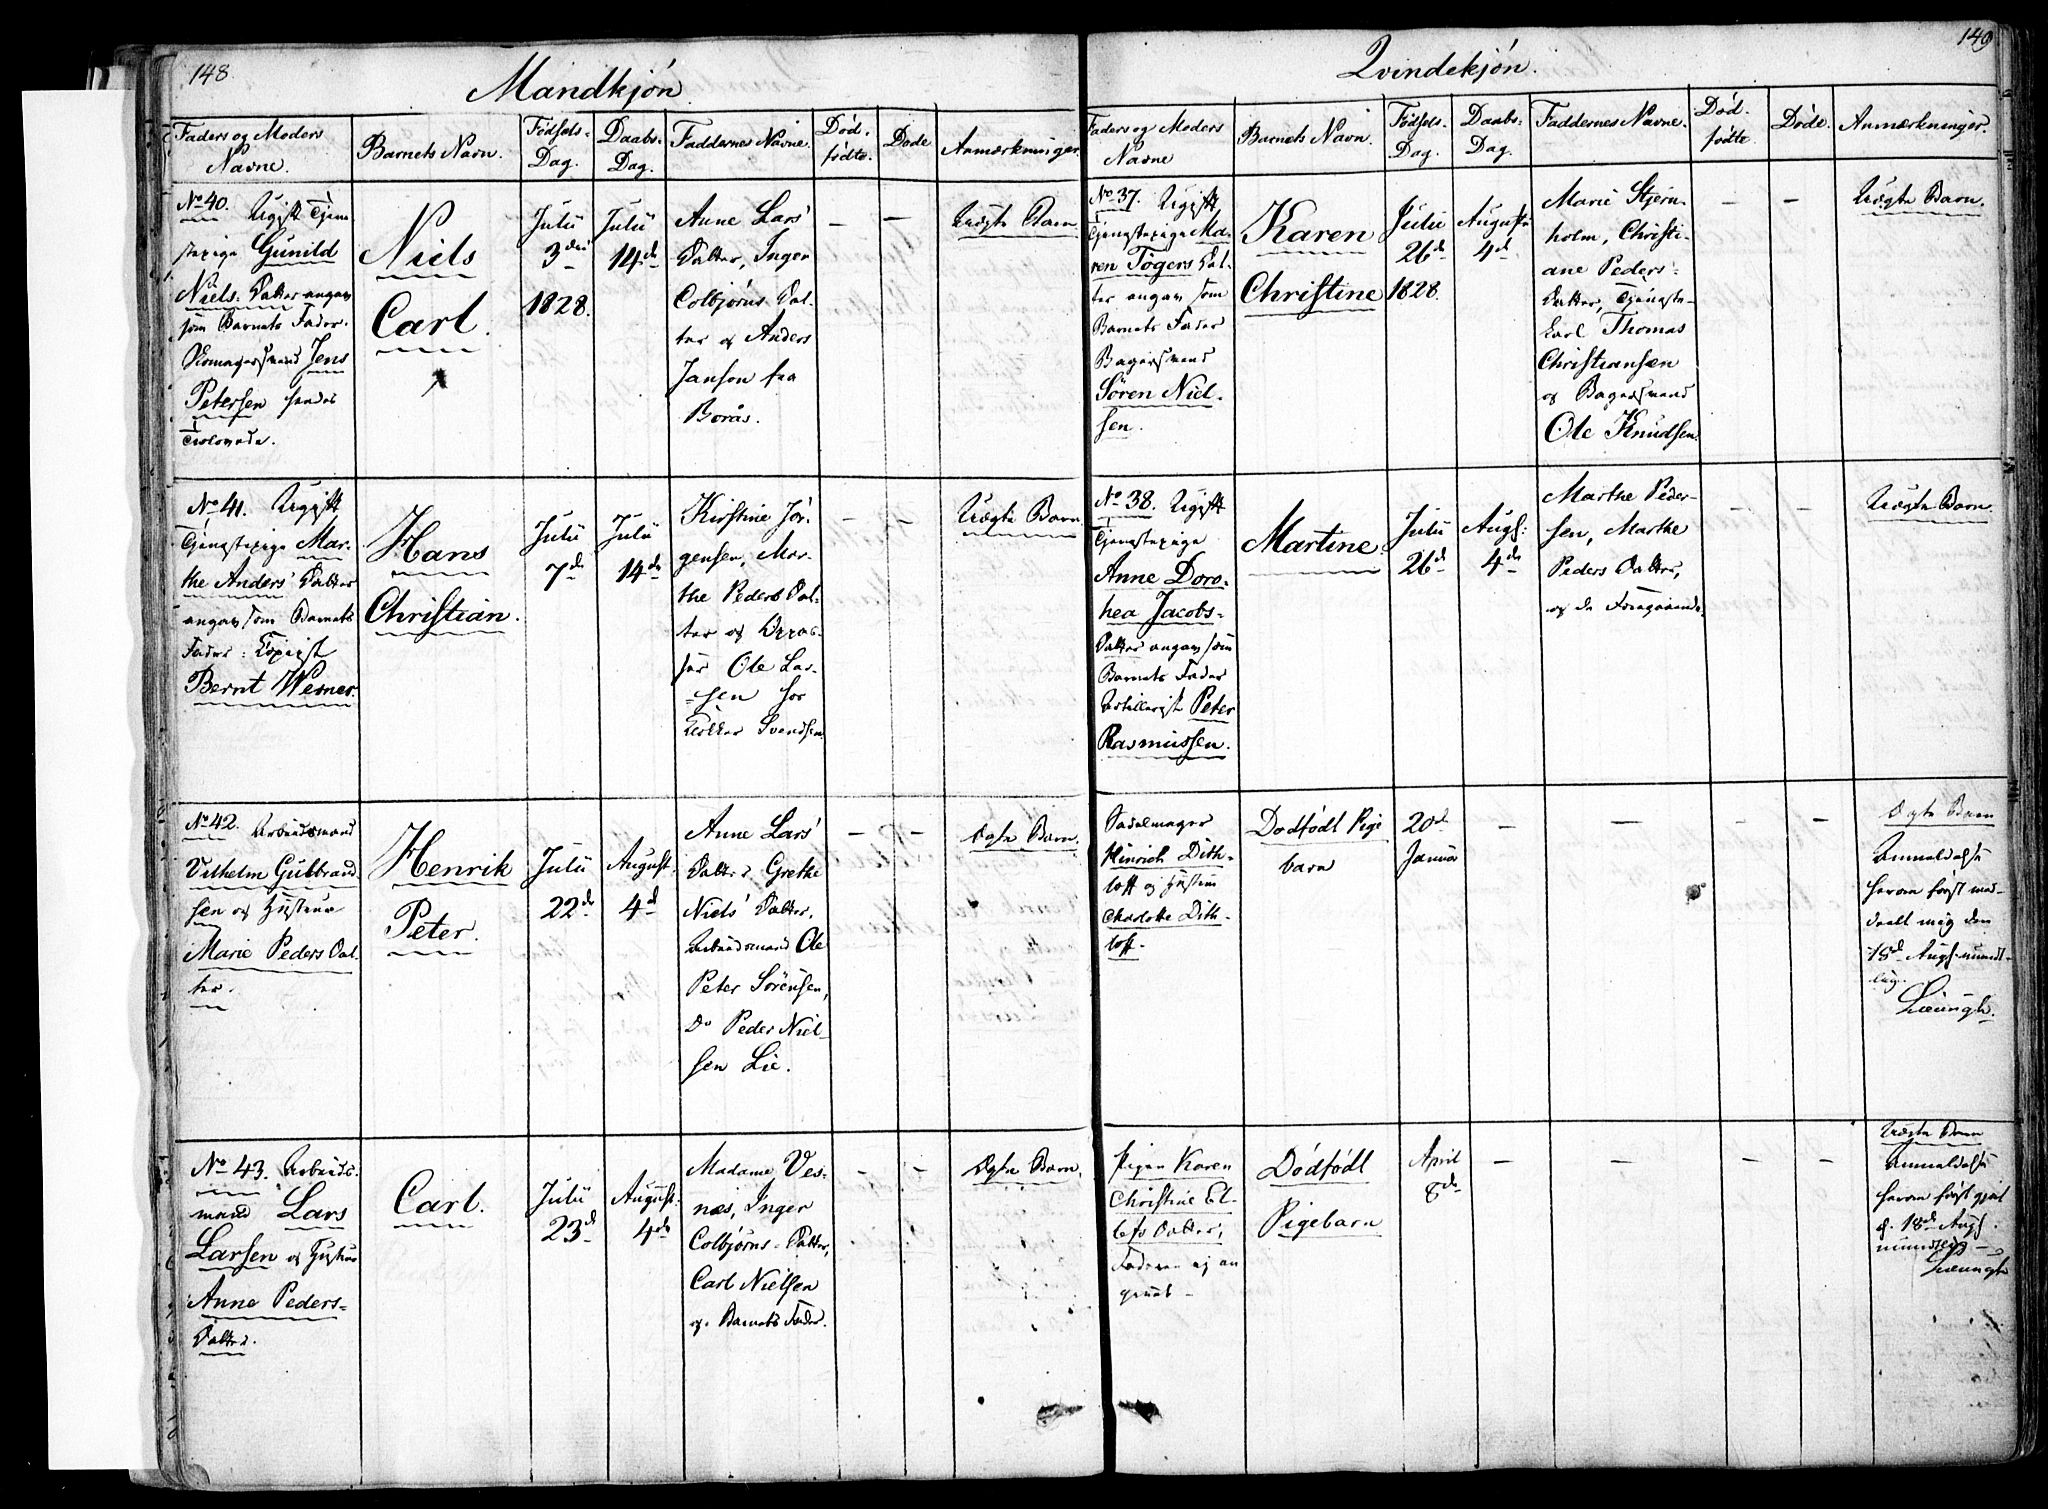 148
Mandkjön
Faders og Moders
Navne.
Barnets Navn.
Födsels-
Dag.
Daabs-
Dag.
Faddernes Navne.
Död-
födte.
Döde
Anmærkninger.
No 40. Ugift Tjene
stepige Gunild
Niels Datter angav
som Barnets Fader
Skomagersvend Jens
Petersen hendes
Trolovede.
Niels
Carl.
Julii
3die
1828.
Julii
14de
Anne Lars'
Datter, Inger
Colbjörns Dat-
ter og Anders
Janson fra
Borås.
— —
Uægte Barn.
No 41. Ugift
Tjenstepige Mar-
the Anders' Datter
angav som Barnets
Fader:
Bernt Wesner.
Hans
Christian.
Julii
7de
Julii
14de
Kirstine Jör-
gensen, Mar-
the Peders Dat-
ter og
Ole Lar-
sen for
Svendsen.
— —
Uægte Barn.
No 42. Arbeidsmand
Vilhelm Gulbrand
sen og Hustrue
Marie Peders Dat
ter.
Henrik
Peter.
Julii
22de
August
4de
Anne Lars'
Datter, Grethe
Niels' Datter,
Arbeidsmand Ole
Peter Sörensen,
Do Peder Niel-
sen Lie.
— —
Ægte Barn.
No 43. Arbeids-
mand Lars
Larsen og Hustrue
Anne Peders-
Datter.
Carl.
Julii
23de
August
4de
Madame Ves-
næs, Inger
Colbjörns-Datter,
Carl Nielsen
og Barnets Fader.
— —
Ægte Barn.
149
Qvindekjön.
Faders og Moders
Navne
Barnets Navn.
Födsels-
Dag.
Daabs-
Dag.
Faddernes Navne.
Död-
födte
Döde.
Anmærkninger.
No 37. Ugift
Tjenstepige Ma-
ren Tögers Dat-
ter angav som
Barnets Fader
Bagersvend
Sören Niel-
sen.
Karen
Christine
Julii
26de
1828.
Augustii
4de
Marie Stjern-
holm, Christi-
ane Peders-
Datter, Tjeneste-
karl Thomas
Christiansen
og Bagersvend
Ole Knudsen.
— —
Uægte Barn.
No 38. Ugift
Tjenstepige
Anne Doro-
hea Jacobs-
Datter angav som
Barnets Fader
Artillerist Peter
Rasmussen.
Martine
Julii
26de
Augs:
4de
Marthe Peder-
sen, Marthe
Peders Datter,
og de Foregaaende.
— —
Uægte Barn.
Sadelmager
Hinrich Dith-
loff og Hustrue
Charlotte Dith-
loff.
Dödfödt Pige
barn
20de
Januar
— — — —
Ægte Barn
Anmeldelse
herom först med-
deelt mig den
18de Augs. mundt-
lig.
Pigen Karen
Christine El-
lefs Datter,
Faderen ej an
givet —
Dödfödt
Pigebarn
April
8de
— — — —
Uægte Barn
Anmeldelse
herom först gjort
d. 18de Augs.
mundtlig —